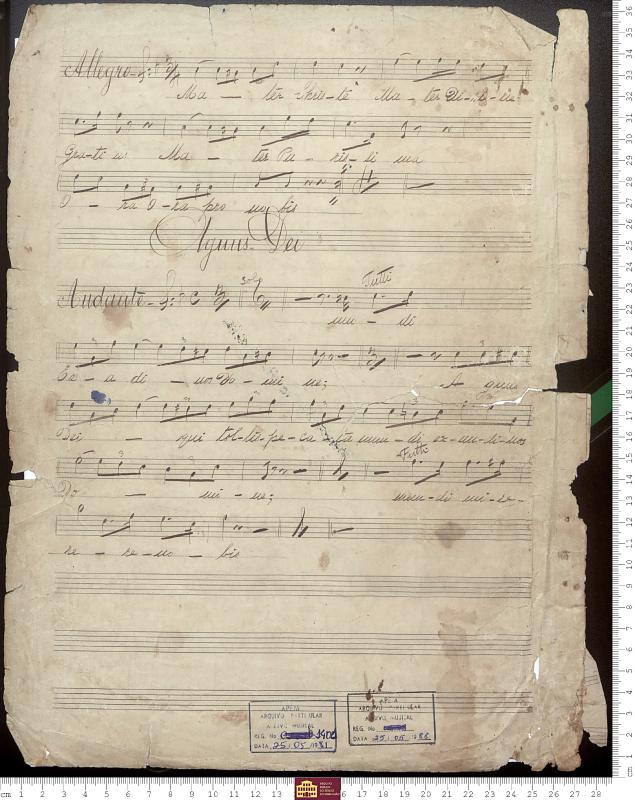 Allegro
Ma - ter Chris-te Ma - ter Di-vi-ne
Gra-ti e Ma - ter Pu - ris-si ma
O - ra O-ra pro no bis
Agnus Dei
Andante
Solo
Tutti
mu - di
Ex - a di - nos Do - mi ne; A gnus
Dei - qui tol-lis-pe-ca - ta mun-di ex-au-di-nos
Tutti
Do - mi - ne; mun-di mi-se-
re - re-no - bis
APEM
ARQUIVO PARTICULAR
REG. No
DATA 25/05/1981
ARQUIVO MUSICAL
REG. No
DATA 25/05/198